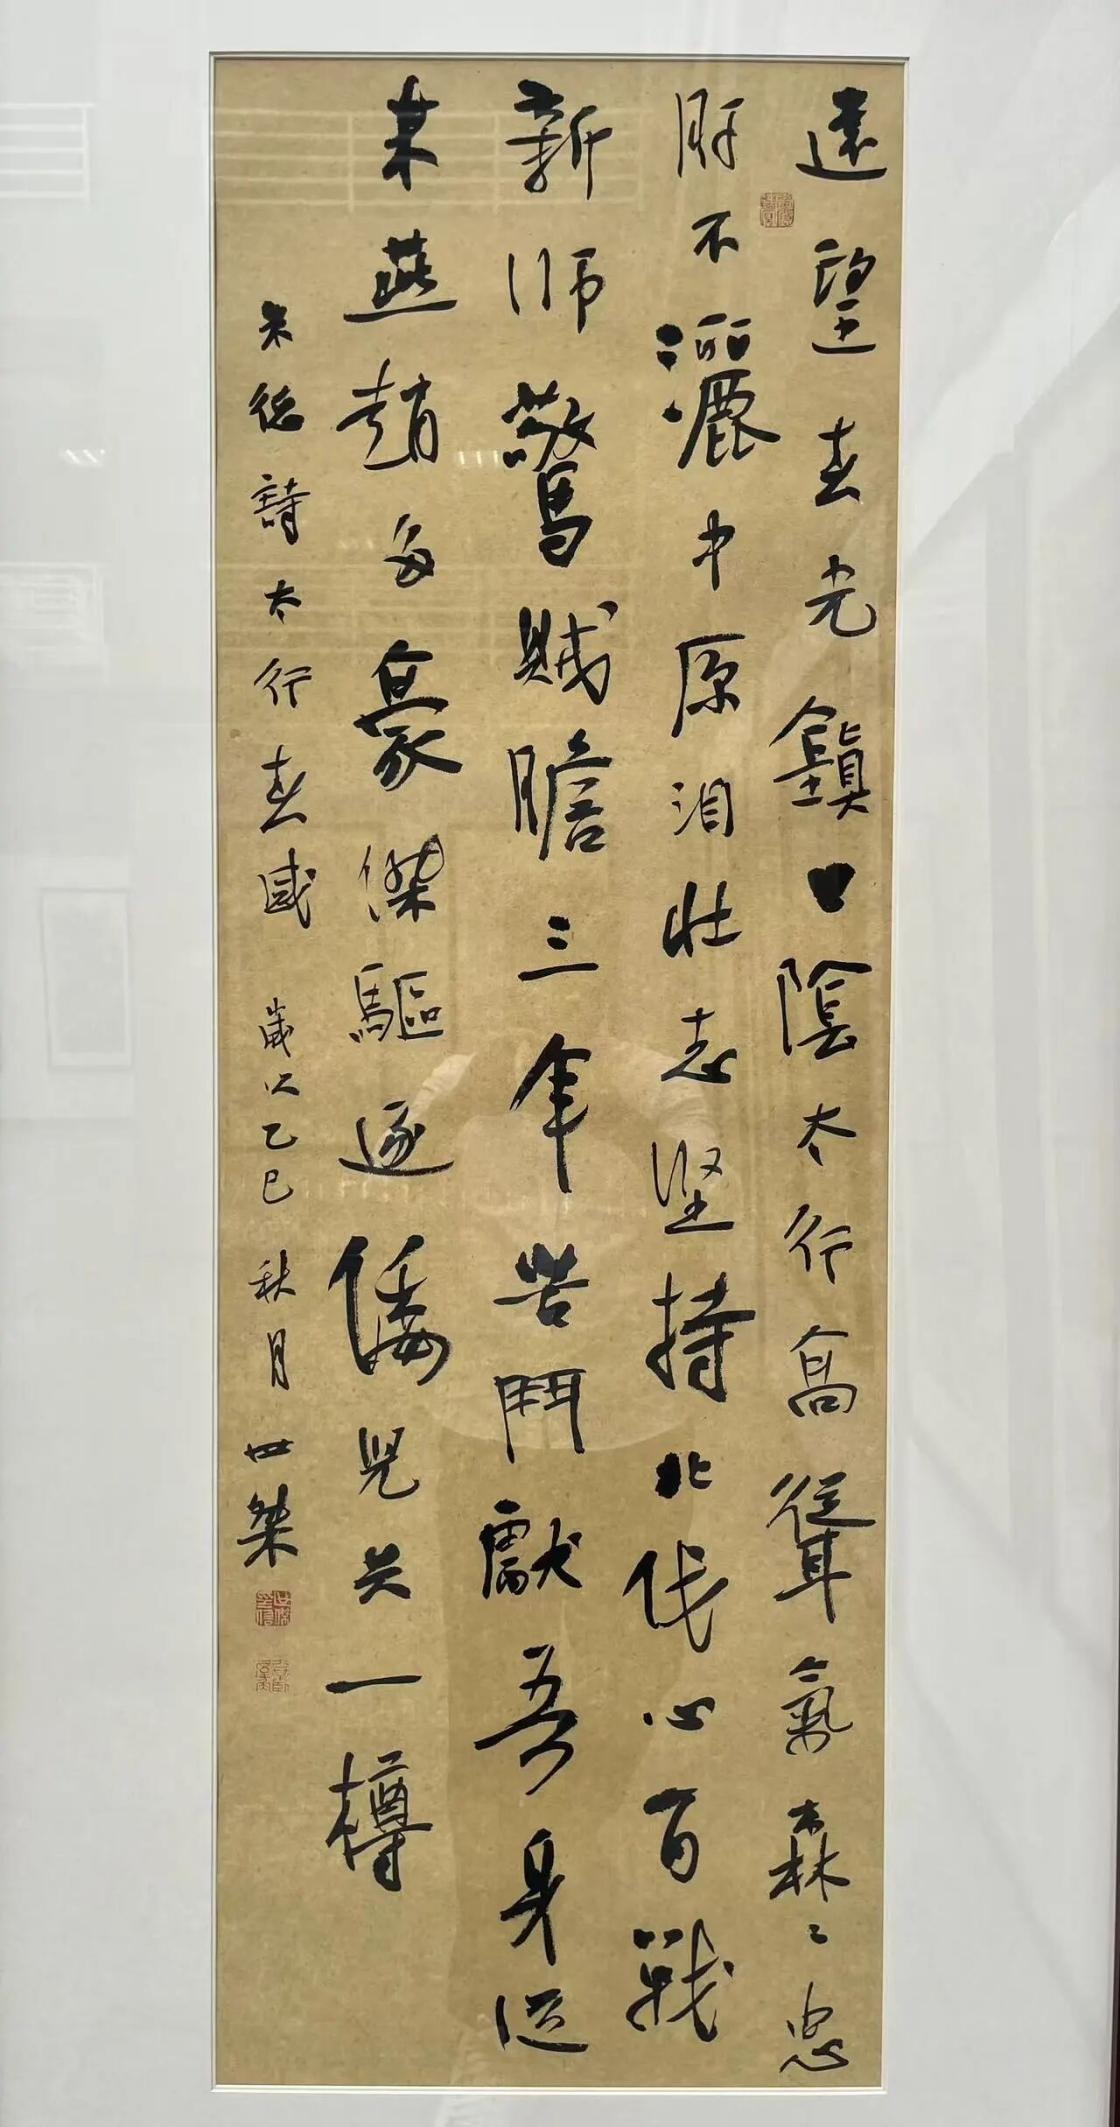 遠望春光鎮日陰太行高聳氣森〻忠
肝不灑中原泪壯志坚持北伐心百戰
新师驚賊膽三年苦鬥獻吾身從
來燕趙多豪傑驅逐倭兒共一樽
朱德詩太行春感 歲次乙巳秋月 世桀